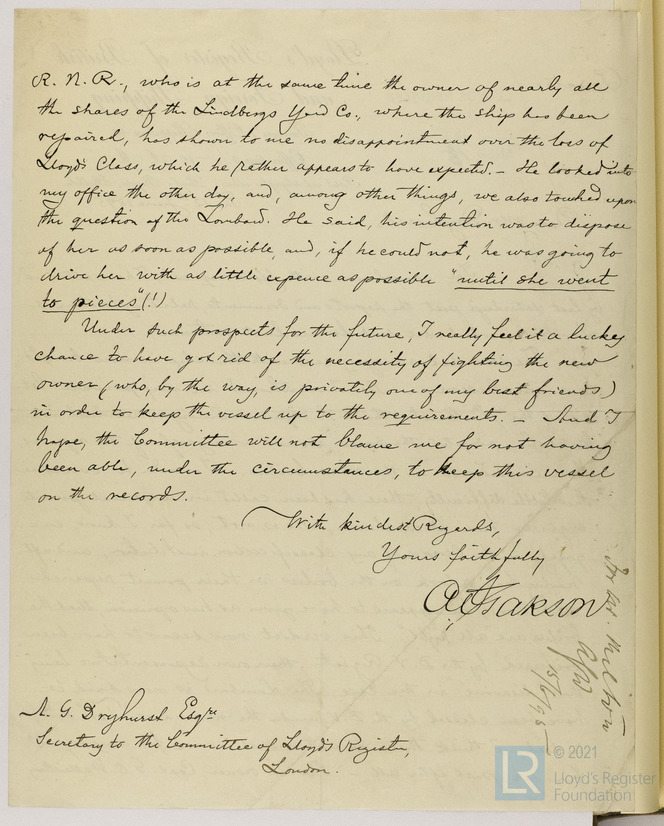 R. N. R., who is at the same time the owner of nearly all
the shares of the Lindbergs Yard Co., where the ship has been
repaired, has shown to me no disappointment over the loss of
Lloyd's Class, which he rather appears to have expected. - He looked into
my office the other day, and, among other things, we also touched upon
the question of the Lombard. He said, his intention was to dispose
of her as soon as possible, and, if he could not, he was going to
drive her with as little expence as possible "until she went
to pieces" (!)
Under such prospects for the future, I really feel it a lucky
chance to have got rid of the necessity of fighting the new
owner (who, by the way, is privately one of my best friends)
in order to keep the vessel up to the requirements. - And I
hope, the Committee will not blame me for not having
been able, under the circumstances, to keep this vessel
on the records.
With kindest Regards,
Yours faithfully
Isakson
Milton
A. G. Dryhurst Esqre
Secretary to the Committee of Lloyd's Register,
London.
LR © 2021
Lloyd's Register
Foundation